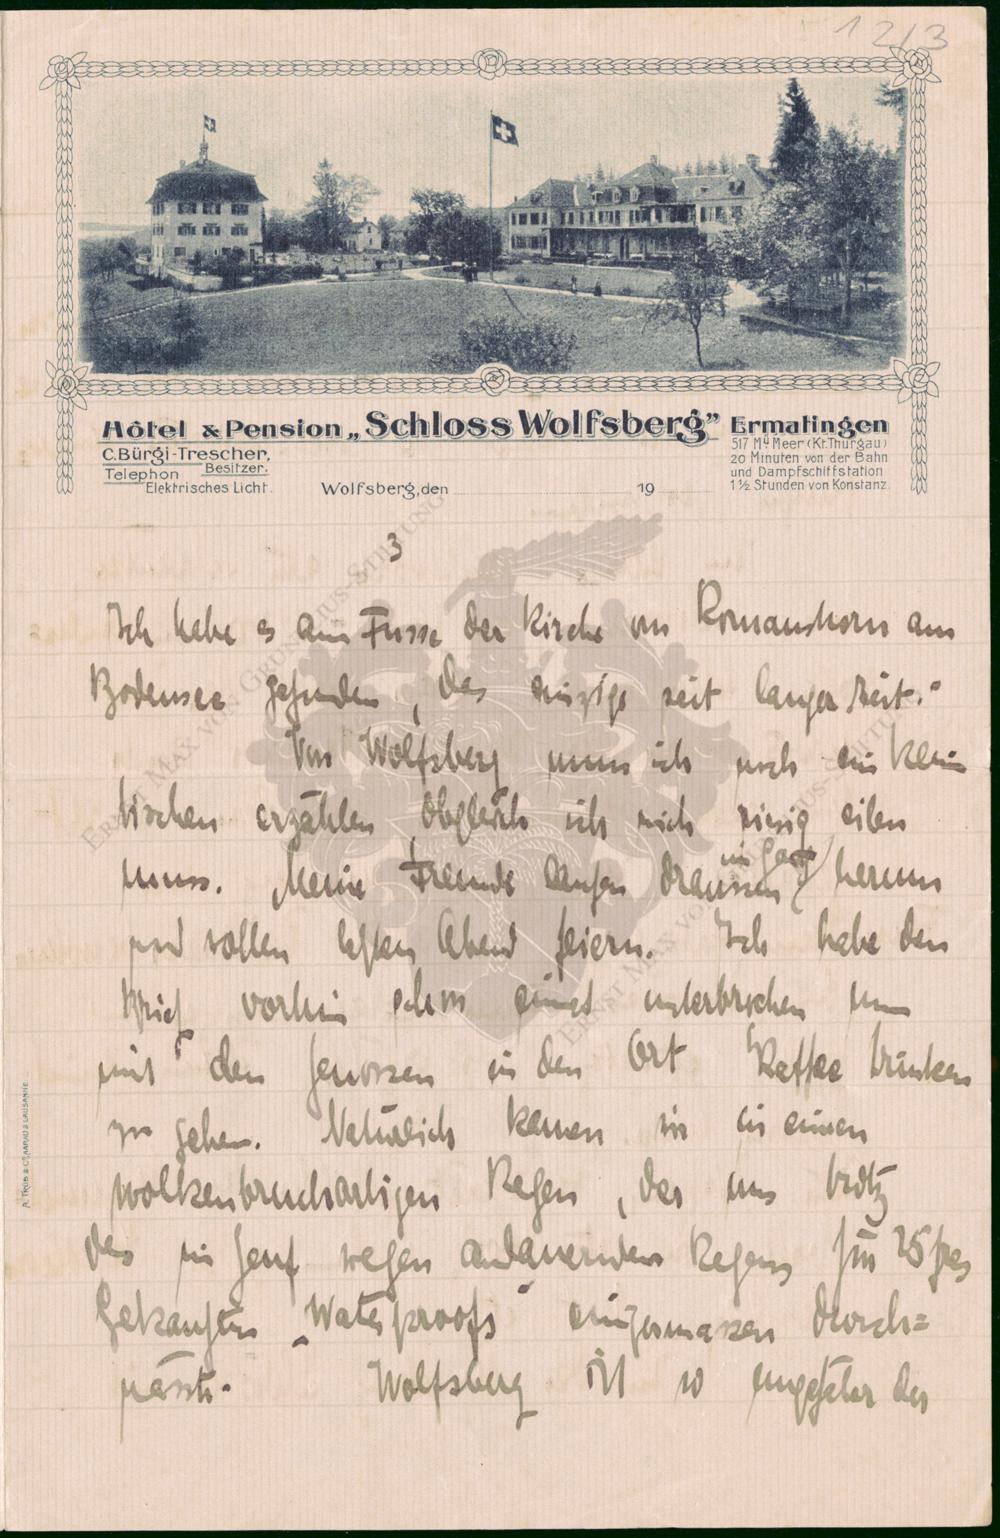 12/3
Hôtel & Pension „Schloss Wolfsberg” Ermatingen
C. Bürgi-Trescher,
Besitzer.
Telephon
Elektrisches Licht.
517 M ü Meer (Kt. Thurgau)
20 Minuten von der Bahn
und Dampfschiffstation
1½ Stunden von Konstanz.
Wolfsberg, den 19
3
Ich habe es am Fusse der Kirche von Romanshorn am
Bodensee gefunden, das einzige seit langer Zeit."
Von Wolfsberg muss ich noch ein klein
bischen erzählen, obgleich ich mich riesig eilen
muss. Meine Freunde laufen draussen im Gang herum
und wollen letzten Abend feiern. Ich habe den
Brief vorhin schon einmal unterbrochen um
mit den Genossen in den Ort Kaffee trinken
zu gehen. Natürlich kamen wir in einen
wolkenbruchartigen Regen, der uns trotz
des in Genf wegen andauernden Regens für 25 frcs
gekauften „Waterproofs" einigermassen durch=
nässte. Wolfsberg ist so ungefähr das
A. Trüb & Cie AARAU & LAUSANNE
ERNST MAX VON GRUNELIUS-STIFTUNG
ERNST MAX VON GRUNELIUS-STIFTUNG